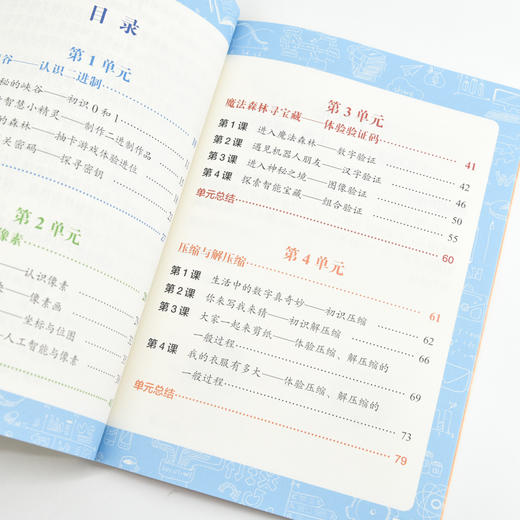 目录
第1单元
谷——认识二进制
秘的峡谷——初识0和1
智慧小精灵——制作二进制作品
的森林——抽卡游戏体验进位
关密码——探寻密钥
第2单元
像素
——认识像素
——像素画
——坐标与位图
—人工智能与像素
第3单元
魔法森林寻宝藏——体验验证码 41
第1课 进入魔法森林——数字验证 42
第2课 遇见机器人朋友——汉字验证 46
第3课 进入神秘之境——图像验证 50
第4课 探索智能宝藏——组合验证 55
单元总结 60
第4单元
压缩与解压缩 61
第1课 生活中的数字真奇妙——初识压缩 62
第2课 你来写我来猜——初识解压缩 66
第3课 大家一起来剪纸——体验压缩、解压缩的
一般过程 69
第4课 我的衣服有多大——体验压缩、解压缩的
一般过程 73
单元总结 79